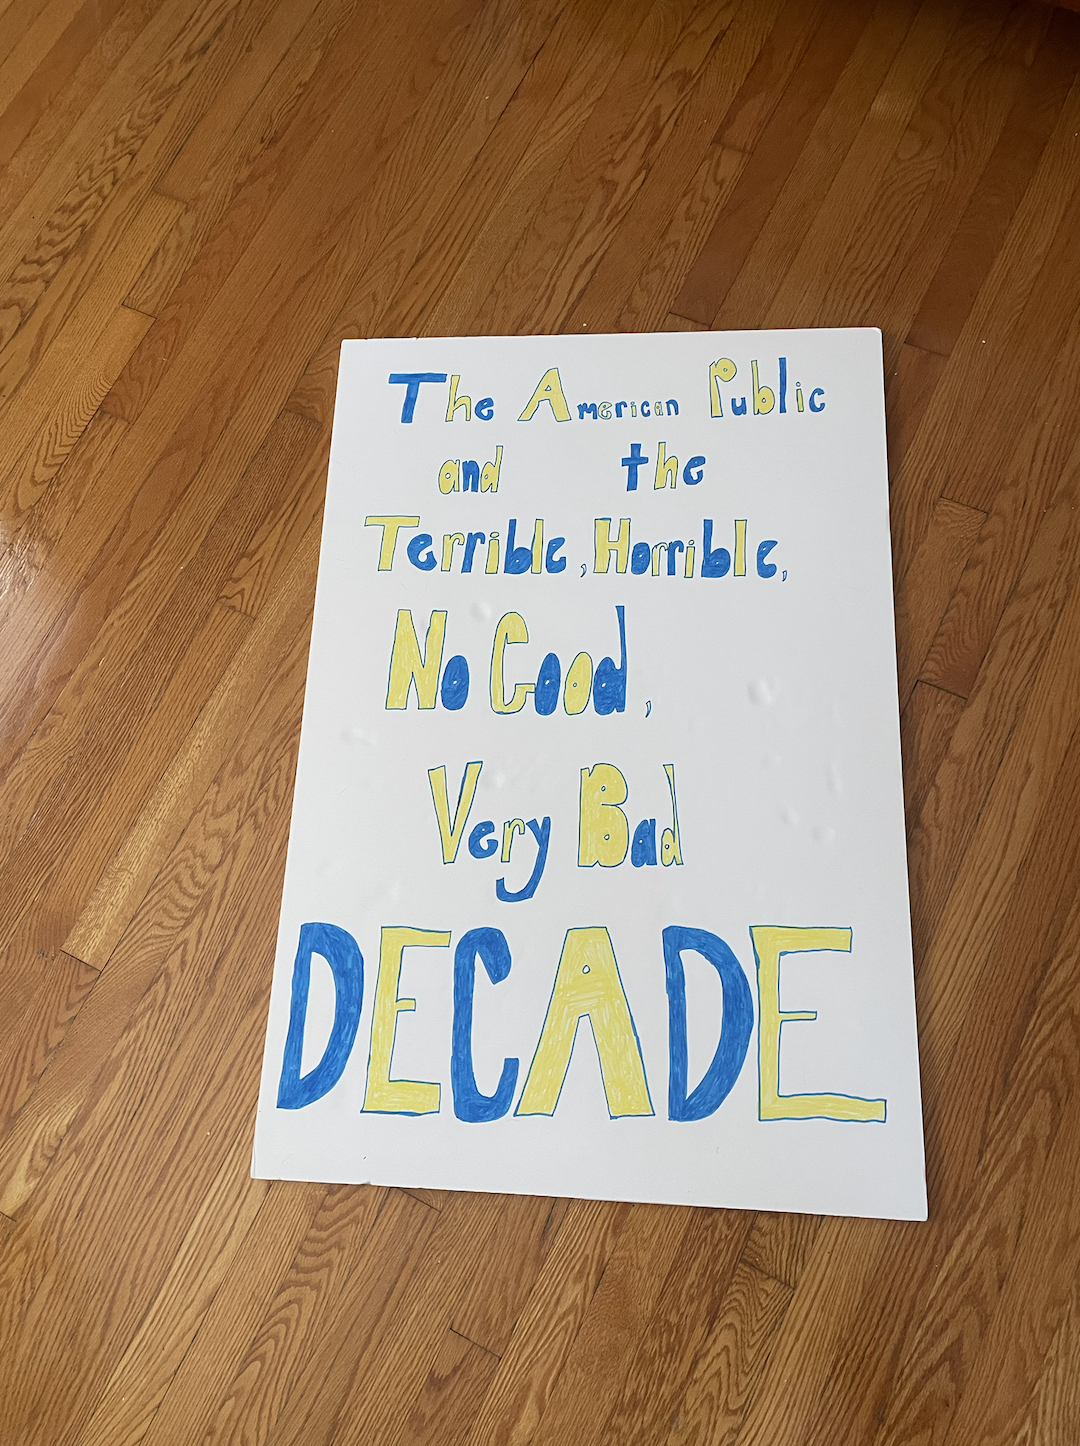 The American Public
and the
Terrible, Horrible,
No Good,
Very Bad
DECADE